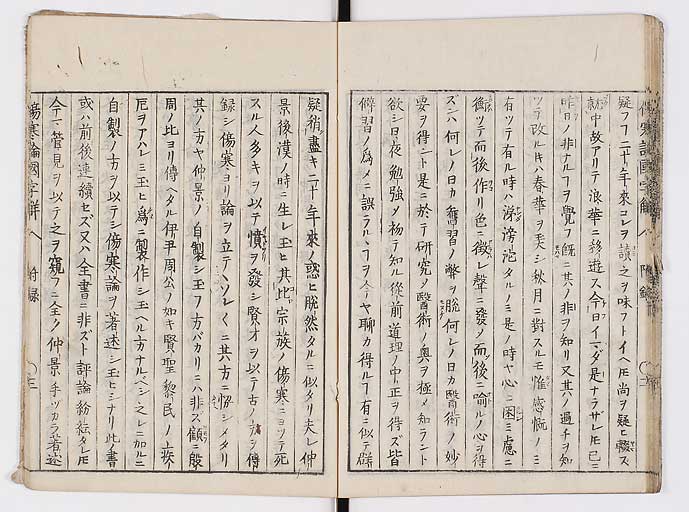 疑フヿ二十年來コレヲ讀ミ之ヲ味フトイヘ𪜈尚ヲ疑ヒ驟ス
就中故アリテ浪華ニ移遊ス今日イマダ是ナラザレ𪜈已ニ
昨日ノ非ナルヿヲ覺フ既ニ其ノ非ヲ知リ又其ノ過チヲ知
ツテ改ルキハ春華ヲ美シ秋月ニ對スルモ惟感慨ノミニ
有ツテ有ル時ハ涕滂沱タルノミ是ノ時ヤ心ニ困ミ慮ニ
衡ツテ而後作リ色ニ徴シ聲ニ發ノ而後ニ喻ルノ心ヲ得
ズンハ何レノ日カ舊習ノ弊ヲ脫何レノ日カ醫術ノ妙
要ヲ得ント是ニ於テ研究メ醫術ノ奧ヲ極メ知ラント
欲シ日夜勉強メ楊テ知ル從前道理ノ中正ヲ得ズ皆
僻習ノ爲メニ誤ラルヽヿヲ今ヤ聊カ得ルヿ有ニ似テ辟
疑稍盡キ二十年來ノ惑ヒ脫然タルニ似タリ夫レ仲
景後漢ノ時ニ生レ玉ヒ其比宗族ノ傷寒ニヨツテ死
スル人多キヲ以テ憤ヲ發シ賢才ヲ以テ古ノ方ヲ傳
録シ傷寒ヨリ論ヲ立テハソレ〳〵ニ其方ニ扮シメタリ
其ノ方ヤ仲景ノ自製シ玉フ方バカリニハ非ズ顧殷
周ノ比ヨリ傳ヘタル伊尹周公ノ如キ賢聖黎民ノ疾
厄ヲアハレミ玉ヒ爲ニ製作シ玉ヘル方ナルベシ之レニ加ルニ
自製ノ方ヲ以テシ傷寒論ヲ著述シ玉ヒシナリ此ノ書
或ハ前後連續セズ又ハ全書ニ非ズト評論紛紜タレ𪜈
今予管見ヲ以テ之ヲ窺フニ全ク仲景手ツカラ著述
傷寒論國字觧 八 附録 〇三